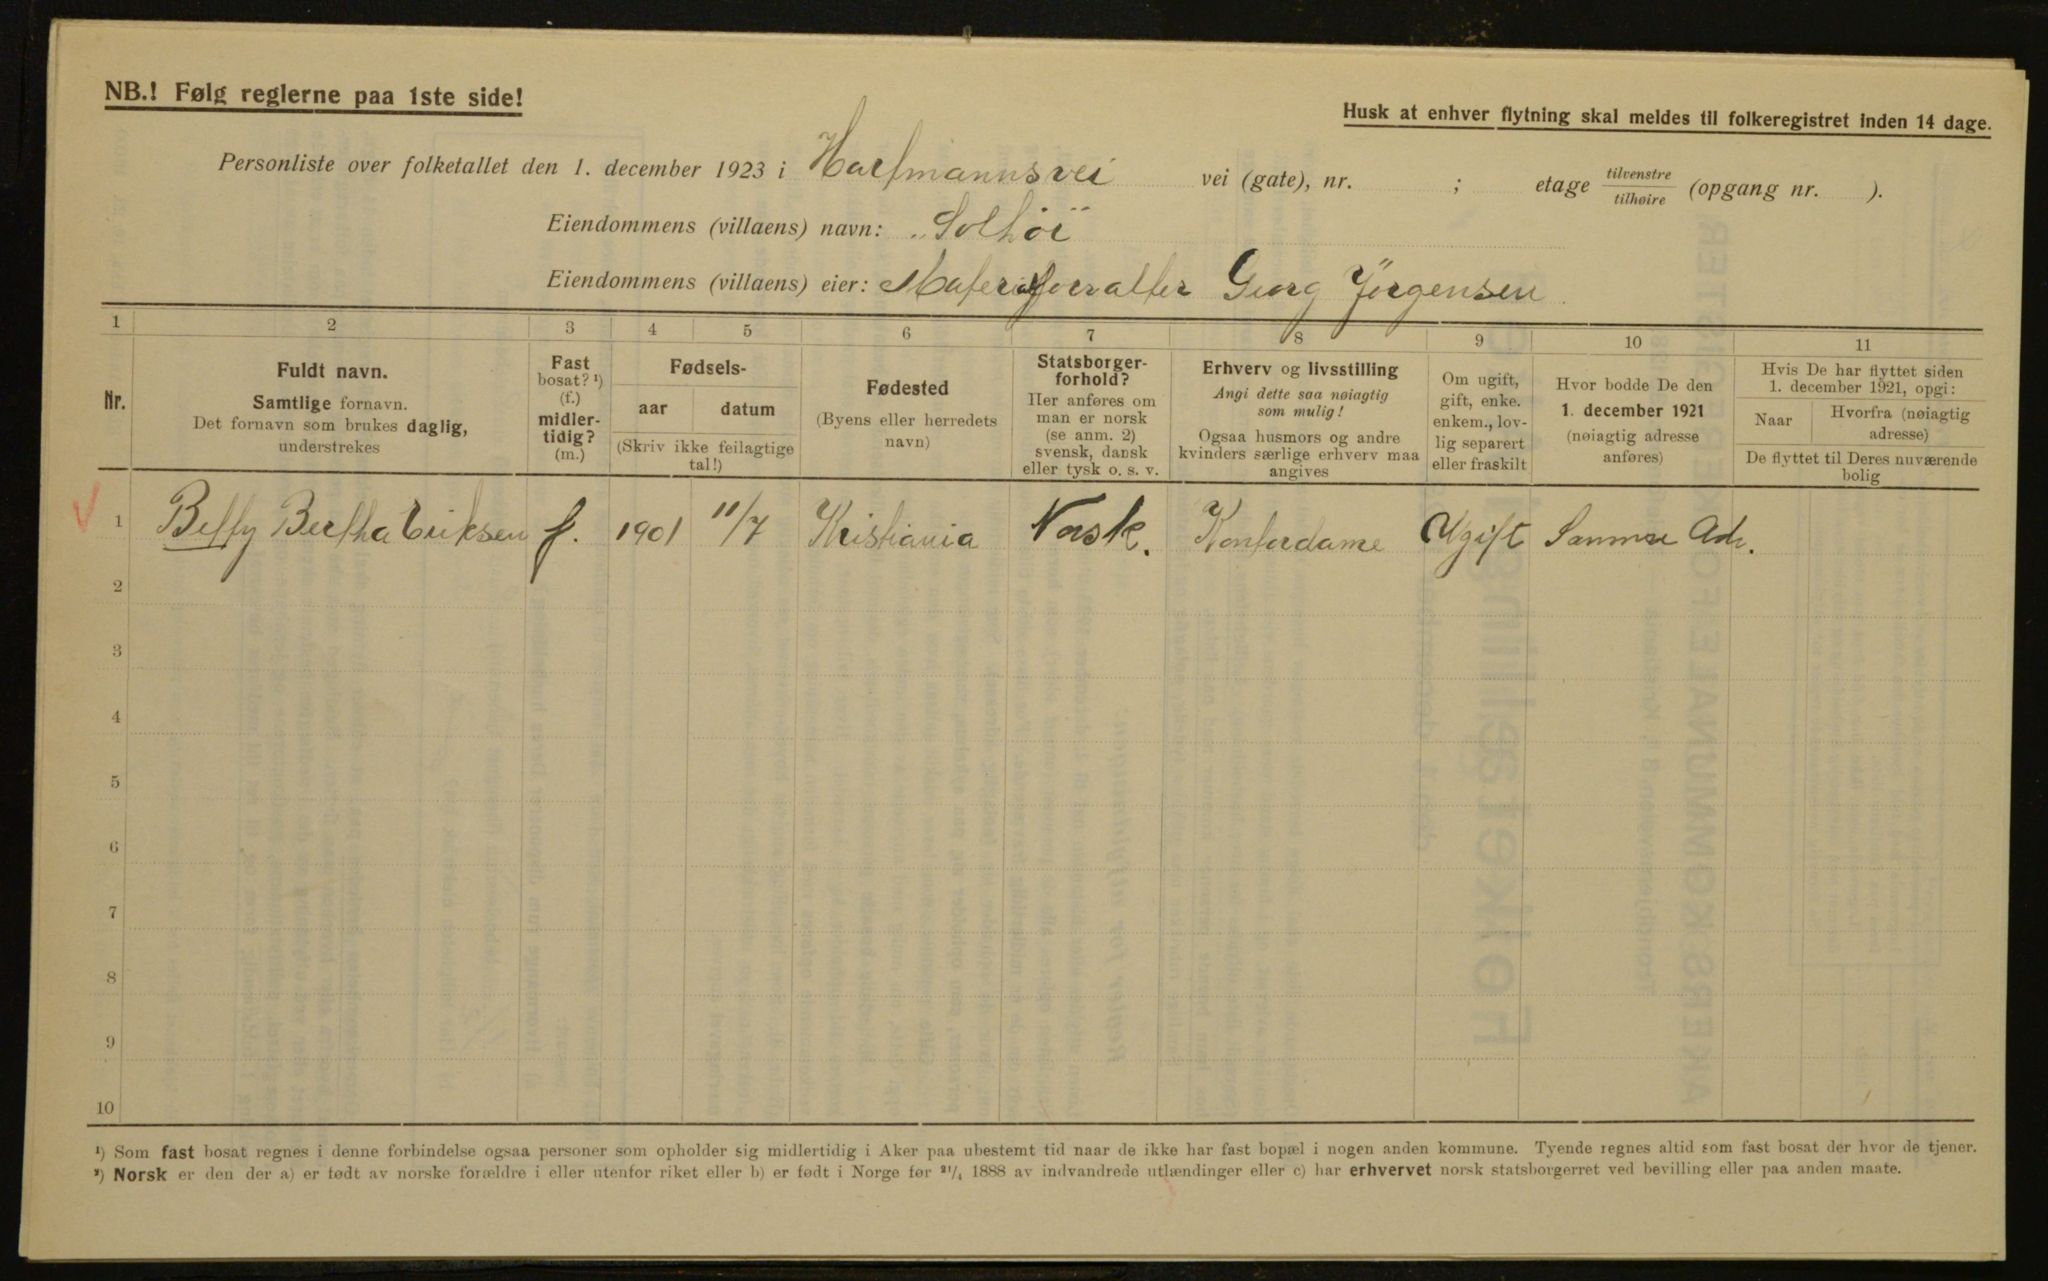 NB.! Følg reglerne paa 1ste side!
Husk at enhver flytning skal meldes til folkeregistret inden 14 dage.
Personliste over folketallet den 1. december 1923 i Hartmannsvei vei (gate), nr. ; etage tilvenstre tilhøire (opgang nr. ).
Eiendommens (villaens) navn: „Solhöi"
Eiendommens (villaens) eier: Materialforvalter Georg Jörgensen
1 2 3 4 5 6 7 8 9 10 11
Nr.
Fuldt navn.
Samtlige fornavn.
Det fornavn som brukes daglig,
understrekes
Fast
bosat? ¹)
(f.)
midler-
tidig?
(m.)
Fødsels-
aar datum
(Skriv ikke feilagtige
tal!)
Fødested
(Byens eller herredets
navn)
Statsborger-
forhold?
Her anføres om
man er norsk
(se anm. 2)
svensk, dansk
eller tysk o. s. v.
Erhverv og livsstilling
Angi dette saa nøiagtig
som mulig!
Ogsaa husmors og andre
kvinders særlige erhverv maa
angives
Om ugift,
gift, enke.
enkem., lov-
lig separert
eller fraskilt
Hvor bodde De den
1. december 1921
(nøiagtig adresse
anføres)
Hvis De har flyttet siden
1. december 1921, opgi:
Naar
Hvorfra (nøiagtig
adresse)
De flyttet til Deres nuværende
bolig
1 Betty Bertha Eriksen f. 1901 11/7 Kristiania Norsk. Kontordame Ugift Samme Adr.
2
3
4
5
6
7
8
9
10
¹) Som fast bosat regnes i denne forbindelse ogsaa personer som opholder sig midlertidig i Aker paa ubestemt tid naar de ikke har fast bopæl i nogen anden kommune. Tyende regnes altid som fast bosat der hvor de tjener.
²) Norsk er den der a) er født av norske forældre i eller utenfor riket eller b) er født i Norge før ²¹/₄ 1888 av indvandrede utlændinger eller c) har erhvervet norsk statsborgerret ved bevilling eller paa anden maate.